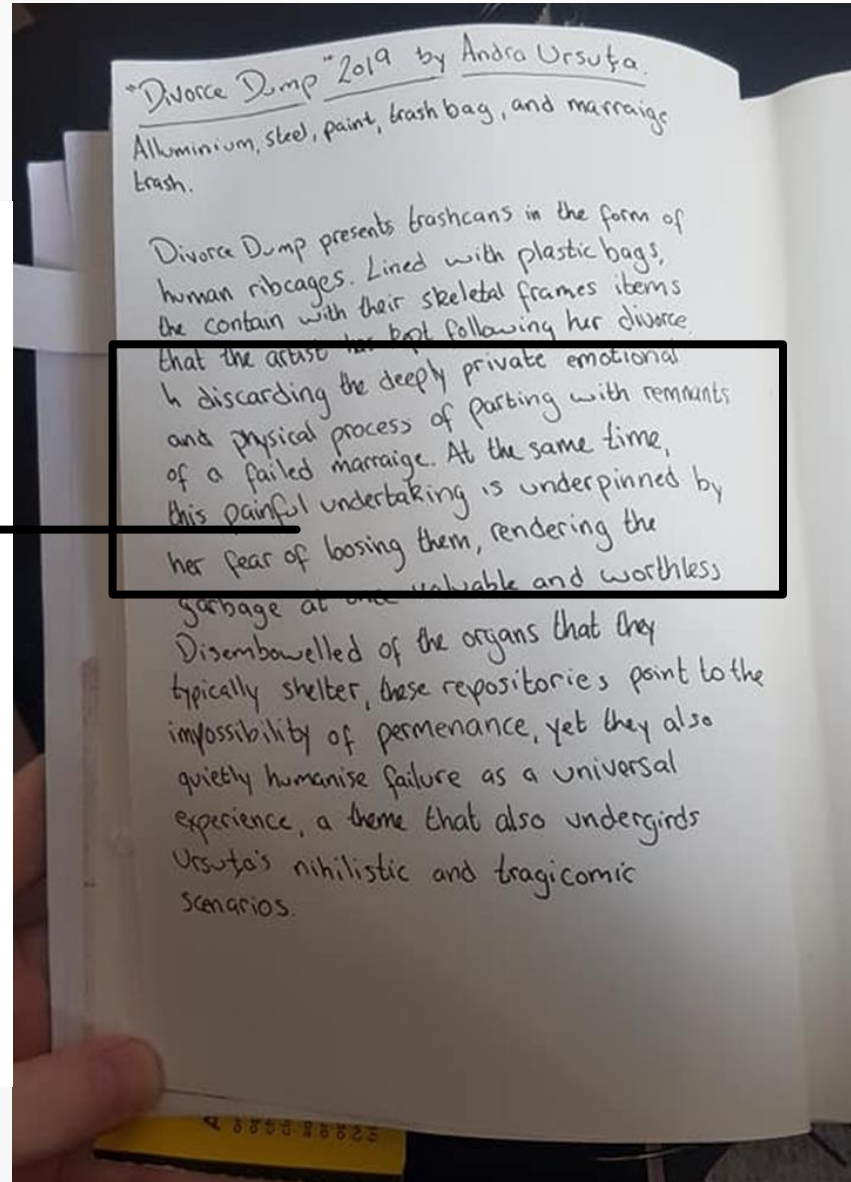 "Divorce Dump" 2019 by Andra Ursuţa.
Alluminium, steel, paint, trash bag, and marraige
trash.
Divorce Dump presents trashcans in the form of
human ribcages. Lined with plastic bags,
the contain with their skeletal frames items
that the artist has kept following her divorce.
discarding the deeply private emotional
and physical process of parting with remnants
of a failed marraige. At the same time,
this painful undertaking is underpinned by
her fear of loosing them, rendering the
garbage at once valuable and worthless
Disembowelled of the organs that they
typically shelter, these repositories point to the
impossibility of permenance, yet they also
quietly humanise failure as a universal
experience, a theme that also undergirds
Ursuţa's nihilistic and tragicomic
scenarios.